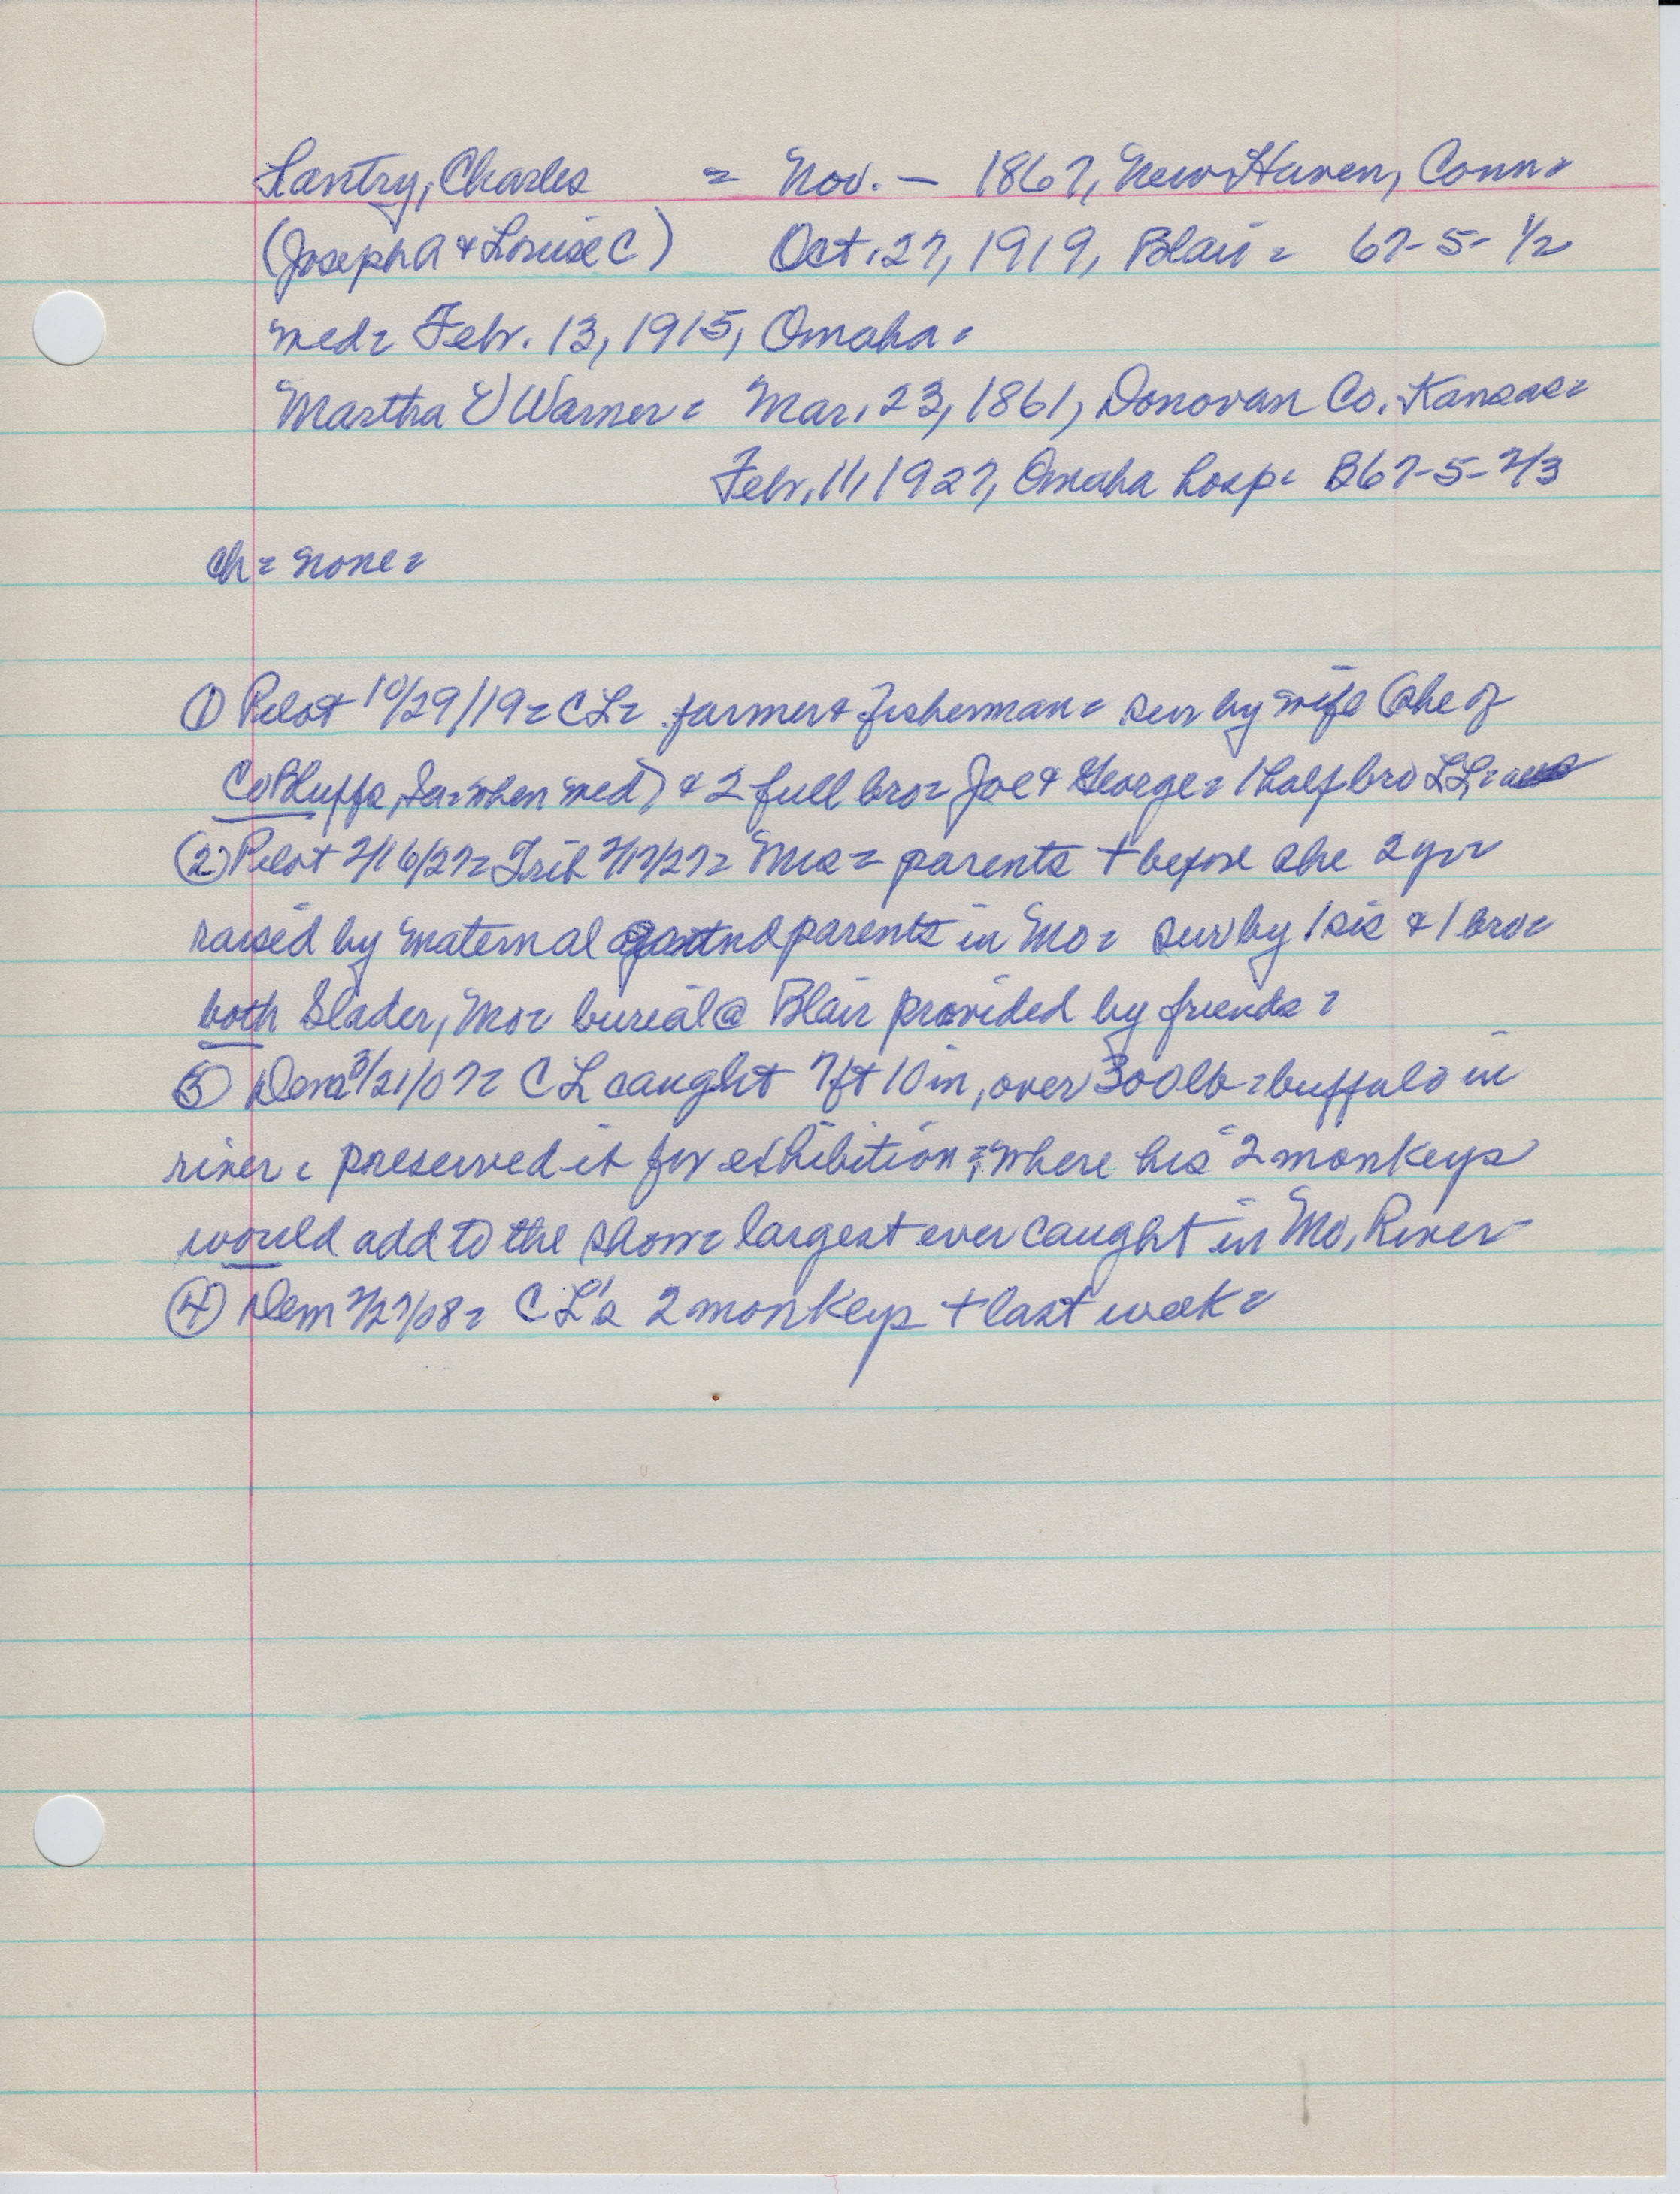 Lantry, Charles = Nov. — 1867, New Haven, Conn=
(Joseph A & Louise C) Oct. 27, 1919, Blair = 67-5-1/2
med= Febr. 13, 1915, Omaha=
Martha E Warner= Mar. 23, 1861, Donovan Co. Kansas=
Febr. 11, 1927, Omaha hosp= B67-5-2/3
ch= none=
① Pilot 10/29/19= CL= farmer & fisherman= sur by wife (she of
Co Bluffs, Ia= when med) & 2 full bro= Joe & George= 1 half bro LL=
② Pilot 2/16/27= Trib 2/17/27= Mrs= parents + before she 2 yr=
raised by maternal grandparents in Mo= sur by 1 sis & 1 bro=
both Slader, Mo= burial @ Blair provided by friends=
③ Dem 3/21/07= CL caught 7ft 10in, over 300lb= buffalo in
river= preserved it for exhibition= where his 2 monkeys
would add to the show= largest ever caught in Mo. River=
④ Dem 2/27/08= CL's 2 monkeys + last week=